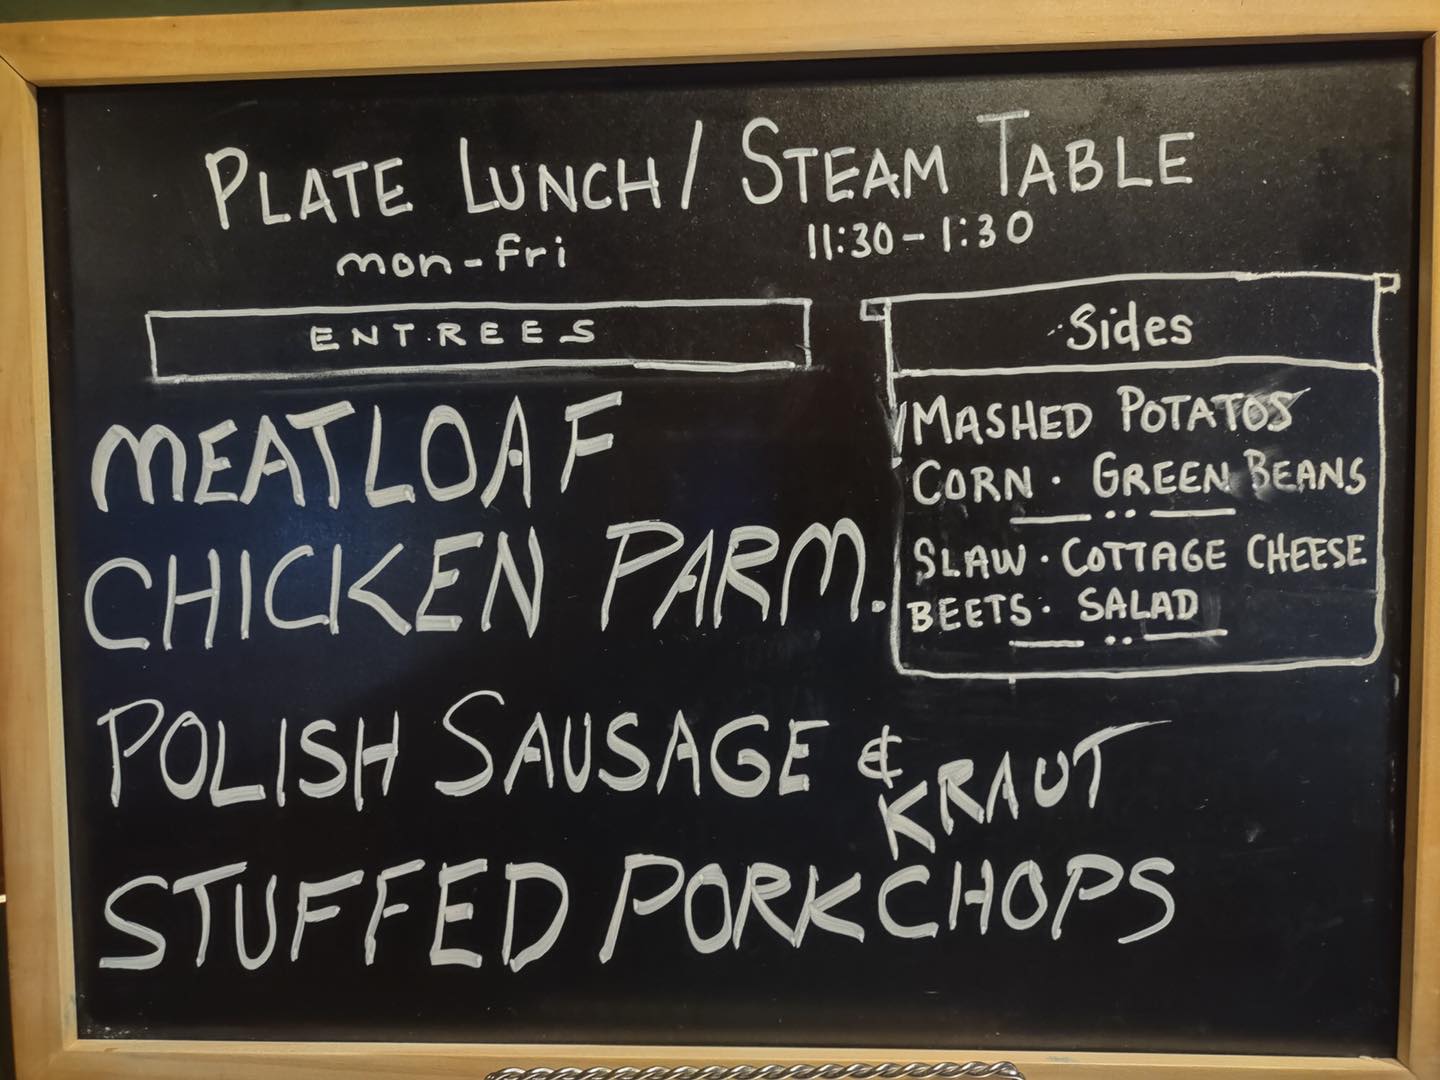 PLATE LUNCH / STEAM TABLE
mon-fri 11:30-1:30
ENTREES
MEATLOAF
CHICKEN PARM.
POLISH SAUSAGE & KRAUT
STUFFED PORKCHOPS
Sides
MASHED POTATOS
CORN · GREEN BEANS
SLAW · COTTAGE CHEESE
BEETS · SALAD